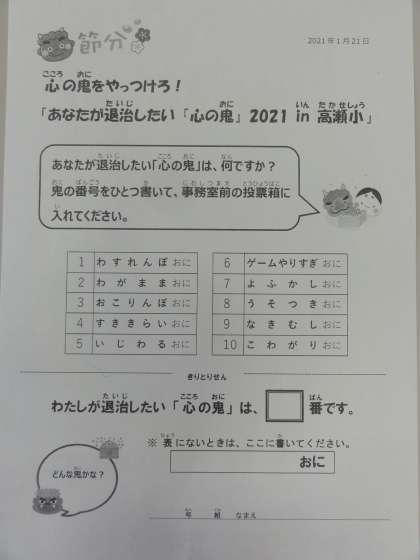 節分
2021年1月21日
心の鬼をやっつけろ！
「あなたが退治したい『心の鬼』2021 in 高瀬小」
あなたが退治したい「心の鬼」は、何ですか？
鬼の番号をひとつ書いて、事務室前の投票箱に
入れてください。
1 わすれんぼおに
2 わがままおに
3 おこりんぼおに
4 すききらいおに
5 いじわるおに
6 ゲームやりすぎおに
7 よふかしおに
8 うそつきおに
9 なきむしおに
10 こわがりおに
きりとりせん
わたしが退治したい「心の鬼」は、 番です。
※ 表にないときは、ここに書いてください。
おに
どんな鬼かな？
年 組 なまえ